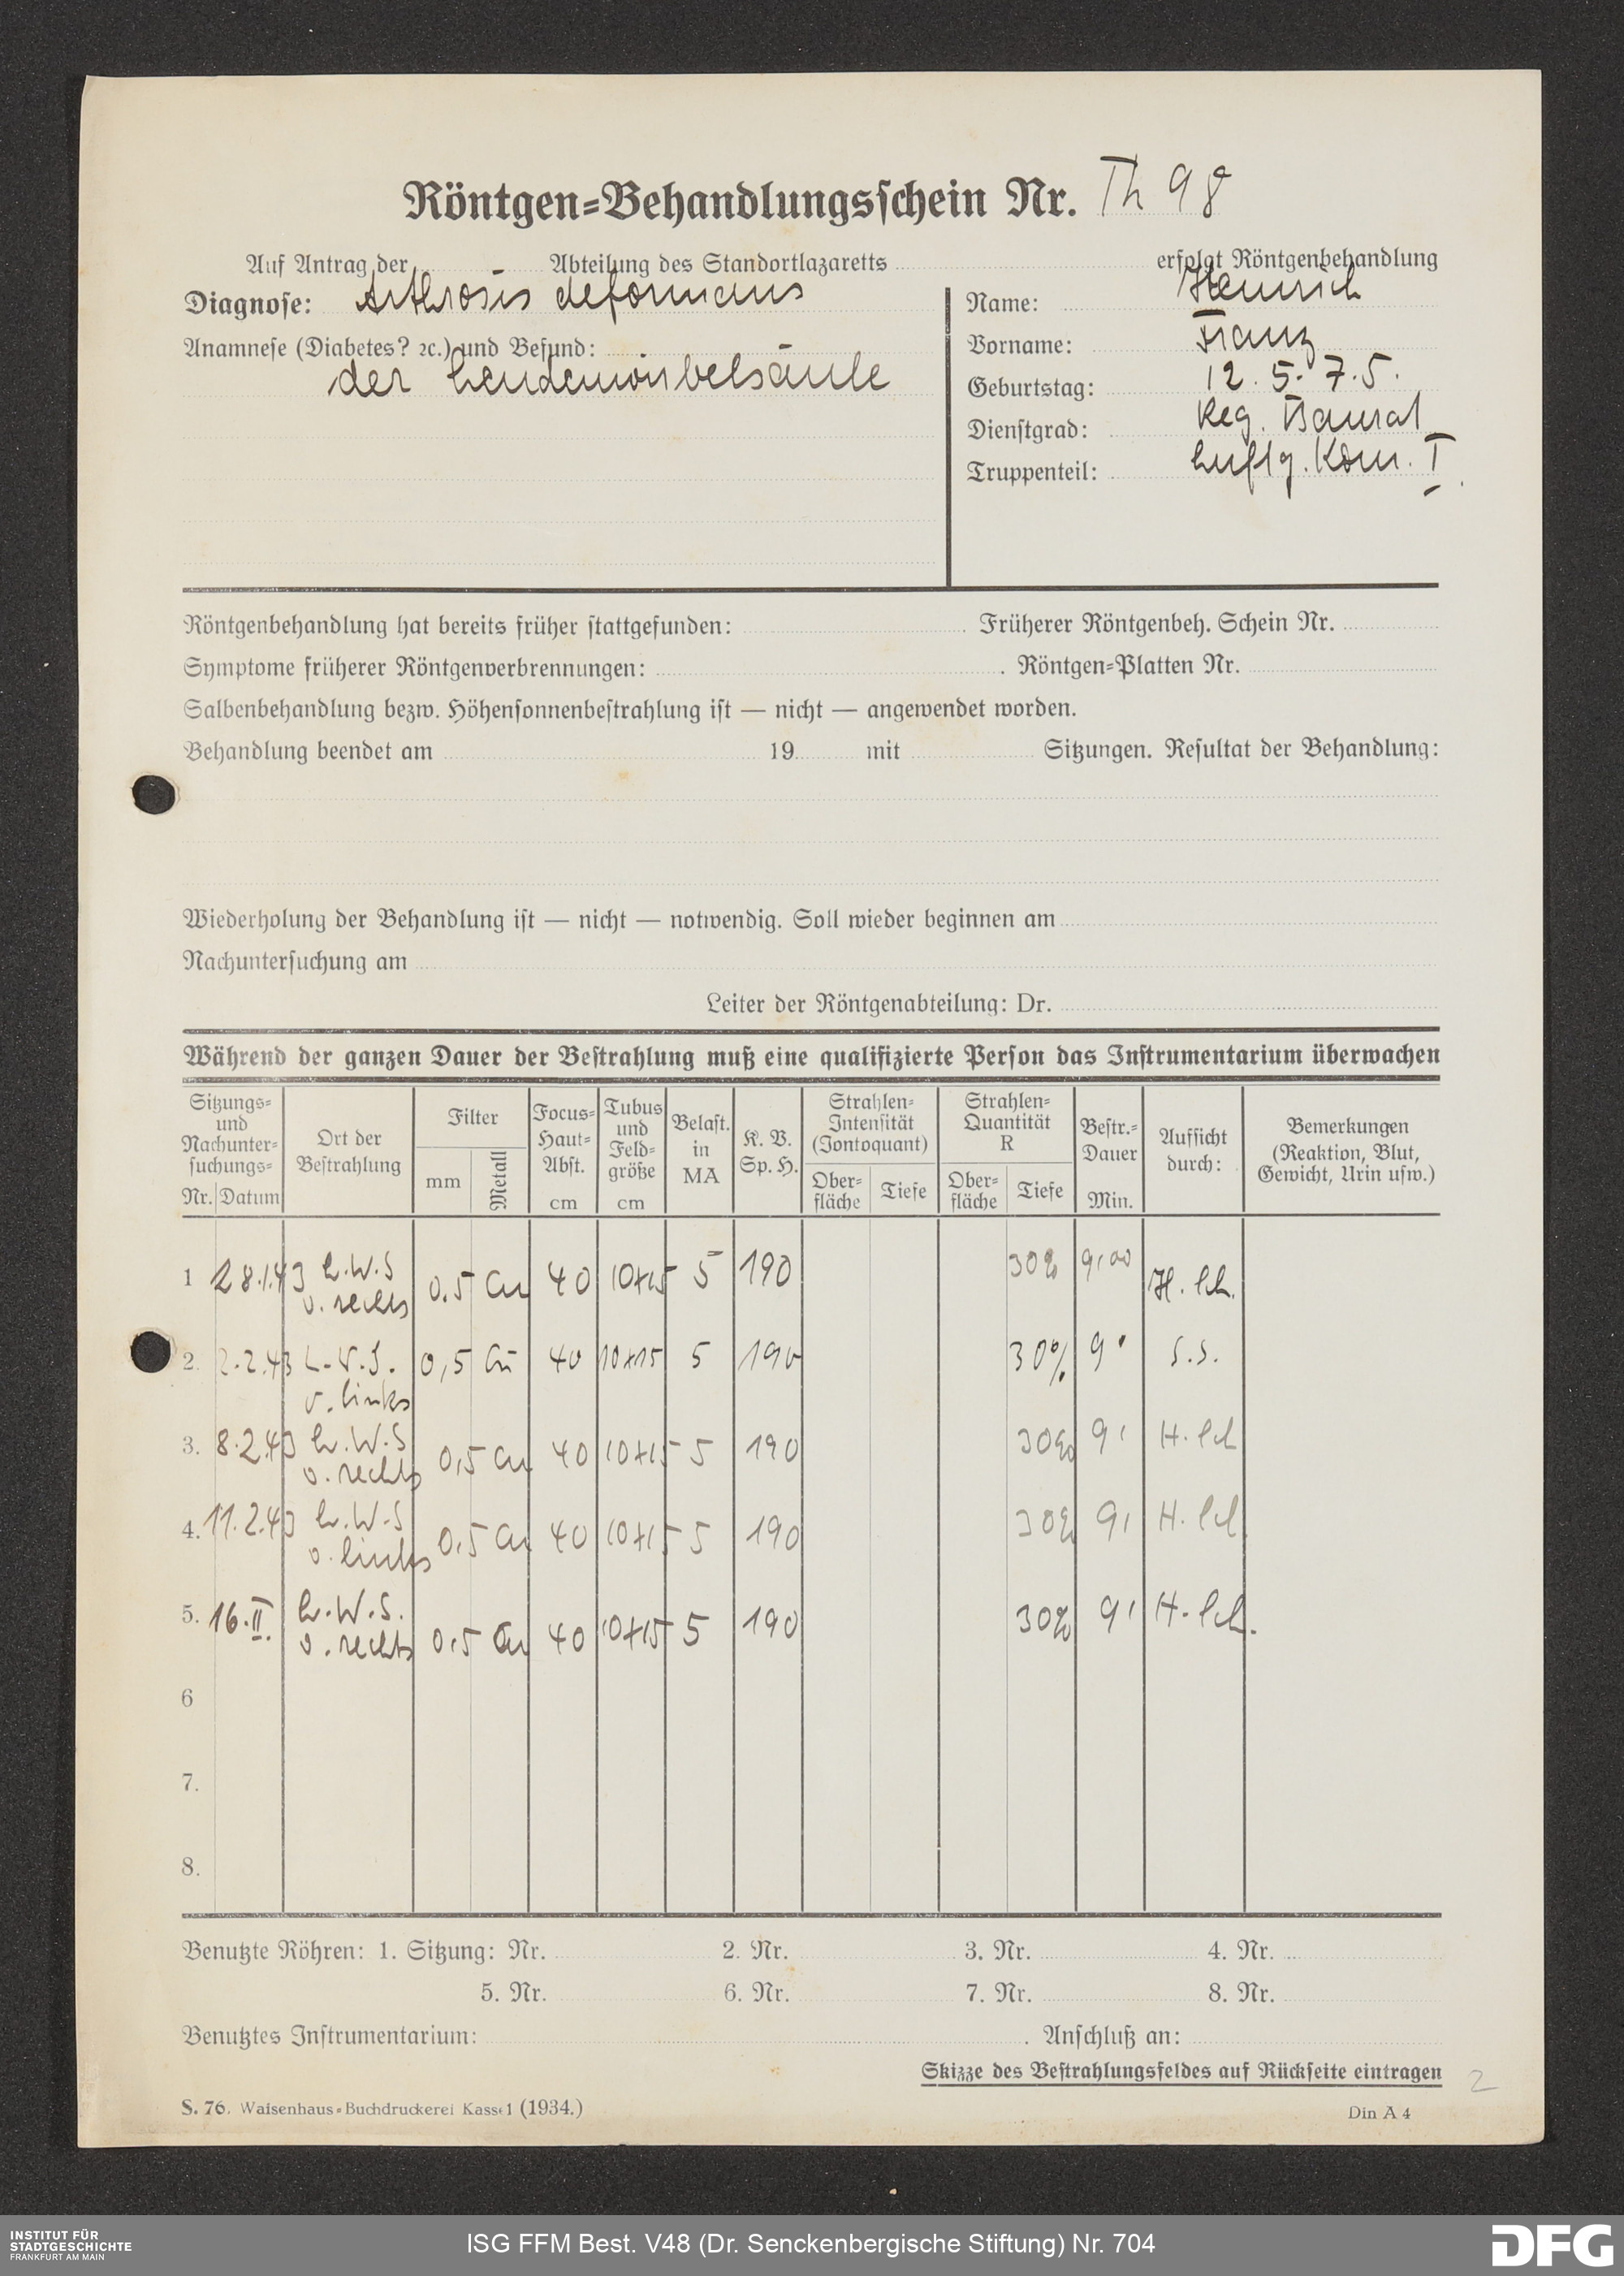 Röntgen=Behandlungsschein Nr. Th 98
Auf Antrag der Abteilung des Standortlazaretts erfolgt Röntgenbehandlung
Diagnose: Arthrosis deformans
Anamnese (Diabetes? 2c.) und Befund:
der Lendenwirbelsäule
Name: Heinrich
Vorname: Franz
Geburtstag: 12. 5. 75.
Dienstgrad: Reg. Baurat
Truppenteil: Luftg. Kom. I
Röntgenbehandlung hat bereits früher stattgefunden: Früherer Röntgenbeh. Schein Nr.
Symptome früherer Röntgenverbrennungen: . Röntgen=Platten Nr.
Salbenbehandlung bezw. Höhensonnenbestrahlung ist — nicht — angewendet worden.
Behandlung beendet am 19 mit Sitzungen. Resultat der Behandlung:
Wiederholung der Behandlung ist — nicht — notwendig. Soll wieder beginnen am
Nachuntersuchung am
Leiter der Röntgenabteilung: Dr.
Während der ganzen Dauer der Bestrahlung muß eine qualifizierte Person das Instrumentarium überwachen
Sitzungs= und Nachunter= suchungs= Nr. Datum
Ort der Bestrahlung
Filter mm Metall
Focus= Haut= Abst. cm
Tubus und Feld= größe cm
Belast. in MA
K. V. Sp. H.
Strahlen= Intensität (Jontoquant) Ober= fläche Tiefe
Strahlen= Quantität R Ober= fläche Tiefe
Bestr.= Dauer Min.
Aufsicht durch:
Bemerkungen (Reaktion, Blut, Gewicht, Urin usw.)
1 28.1.43 L.W.S v. rechts 0.5 Cu 40 10x15 5 190 30% 9,00 H. Sch.
2. 2.2.43 L.W.S. v. links 0,5 Cu 40 10x15 5 190 30% 9' S.S.
3. 8.2.43 L.W.S v. rechts 0,5 Cu 40 10x15 5 190 30% 9' H. Sch
4. 11.2.43 L.W.S v. links 0,5 Cu 40 10x15 5 190 30% 9' H. Sch.
5. 16.II. L.W.S. v. rechts 0,5 Cu 40 10x15 5 190 30% 9' H. Sch.
6
7.
8.
Benutzte Röhren: 1. Sitzung: Nr. 2. Nr. 3. Nr. 4. Nr.
5. Nr. 6. Nr. 7. Nr. 8. Nr.
Benutztes Instrumentarium: . Anschluß an:
Skizze des Bestrahlungsfeldes auf Rückseite eintragen
2
S. 76. Waisenhaus=Buchdruckerei Kassel (1934.) Din A 4
INSTITUT FÜR
STADTGESCHICHTE
FRANKFURT AM MAIN
ISG FFM Best. V48 (Dr. Senckenbergische Stiftung) Nr. 704
DFG